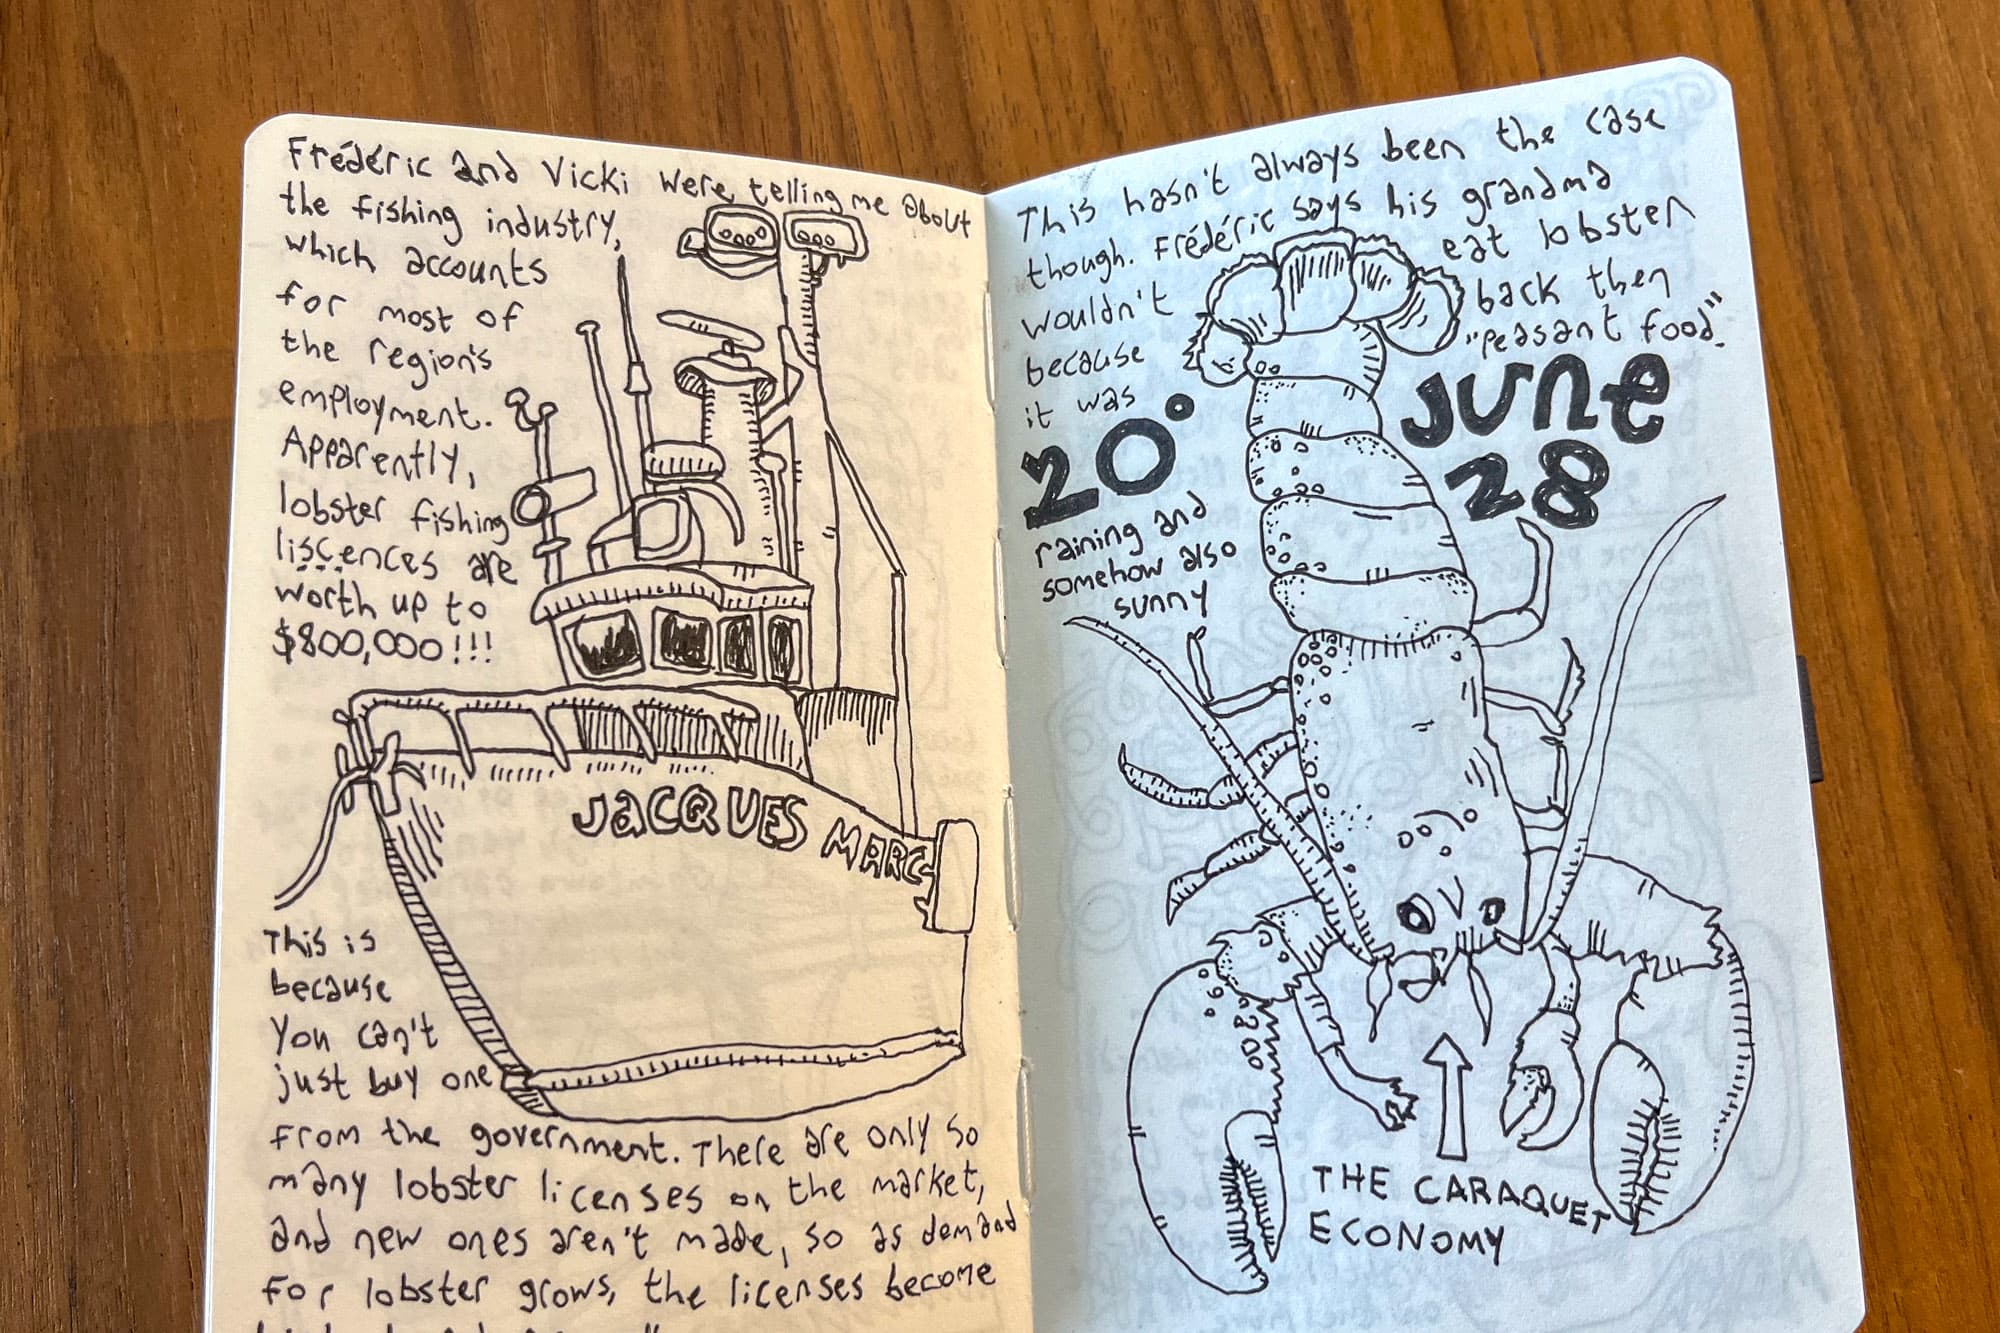 Frédéric and Vicki were telling me about
the fishing industry,
which accounts
for most of
the region's
employment.
Apparently,
lobster fishing
liscences are
worth up to
$800,000!!!
JACQUES MARC
This is
because
you can't
just buy one
from the government. There are only so
many lobster licenses on the market,
and new ones aren't made, so as demand
for lobster grows, the licenses become
This hasn't always been the case
though. Frédéric says his grandma
wouldn't eat lobster
because back then
it was "peasant food."
20°
raining and
somehow also
sunny
JUNE
28
THE CARAQUET
ECONOMY